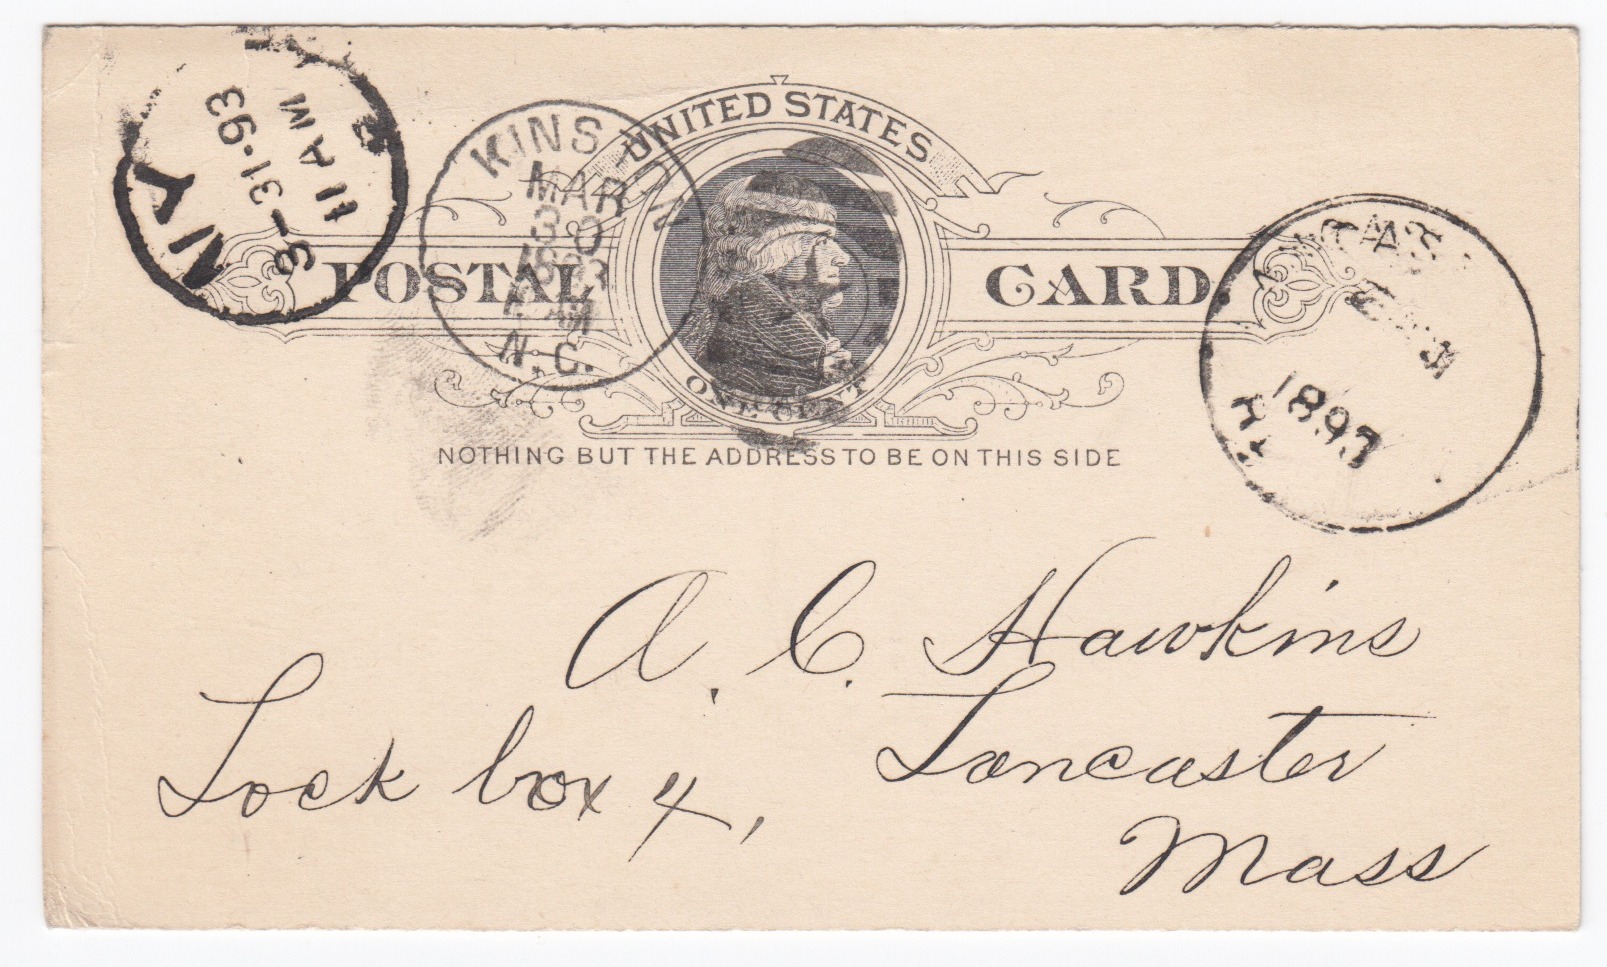 UNITED STATES
POSTAL CARD.
ONE CENT
NOTHING BUT THE ADDRESS TO BE ON THIS SIDE
N.Y.
3-31-93
11 AM
KINSTON
MAR
30
1893
AM
N.C.
1897
A. C. Hawkins
Lock box 4,
Lancaster
Mass